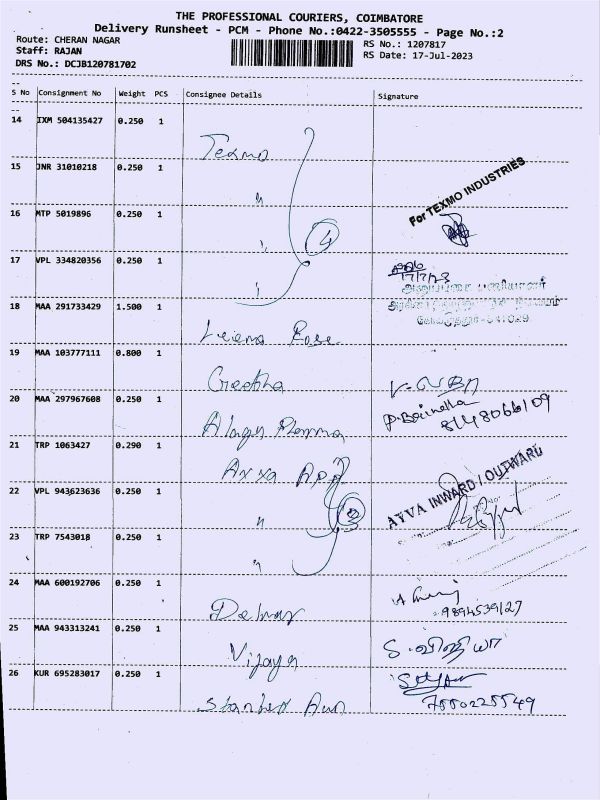 THE PROFESSIONAL COURIERS, COIMBATORE
Delivery Runsheet - PCM - Phone No.:0422-3505555 - Page No.:2
Route: CHERAN NAGAR
Staff: RAJAN
DRS No.: DCJB120781702
RS No.: 1207817
RS Date: 17-Jul-2023
S No Consignment No Weight PCS Consignee Details Signature
14 IXM 504135427 0.250 1
Texmo
15 JNR 31010218 0.250 1
"
For TEXMO INDUSTRIES
16 MTP 5019896 0.250 1
"
4
17 VPL 334820356 0.250 1
"
17/7/23
18 MAA 291733429 1.500 1
Leema Rose
19 MAA 103777111 0.800 1
Geetha
20 MAA 297967608 0.250 1
8148066109
21 TRP 1063427 0.290 1
22 VPL 943623636 0.250 1
"
3
AYVA INWARD / OUTWARD
23 TRP 7543018 0.250 1
"
24 MAA 600192706 0.250 1
9894539127
25 MAA 943313241 0.250 1
Vijaya
26 KUR 695283017 0.250 1
7550225549